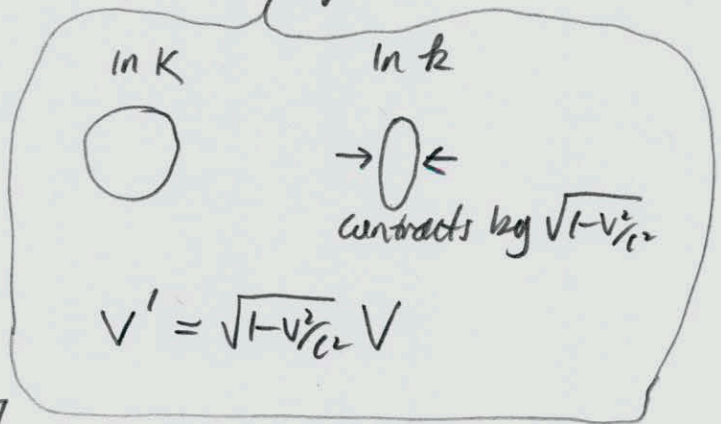 In K
In k
contracts by √1-v²/c²
V' = √1-v²/c² V